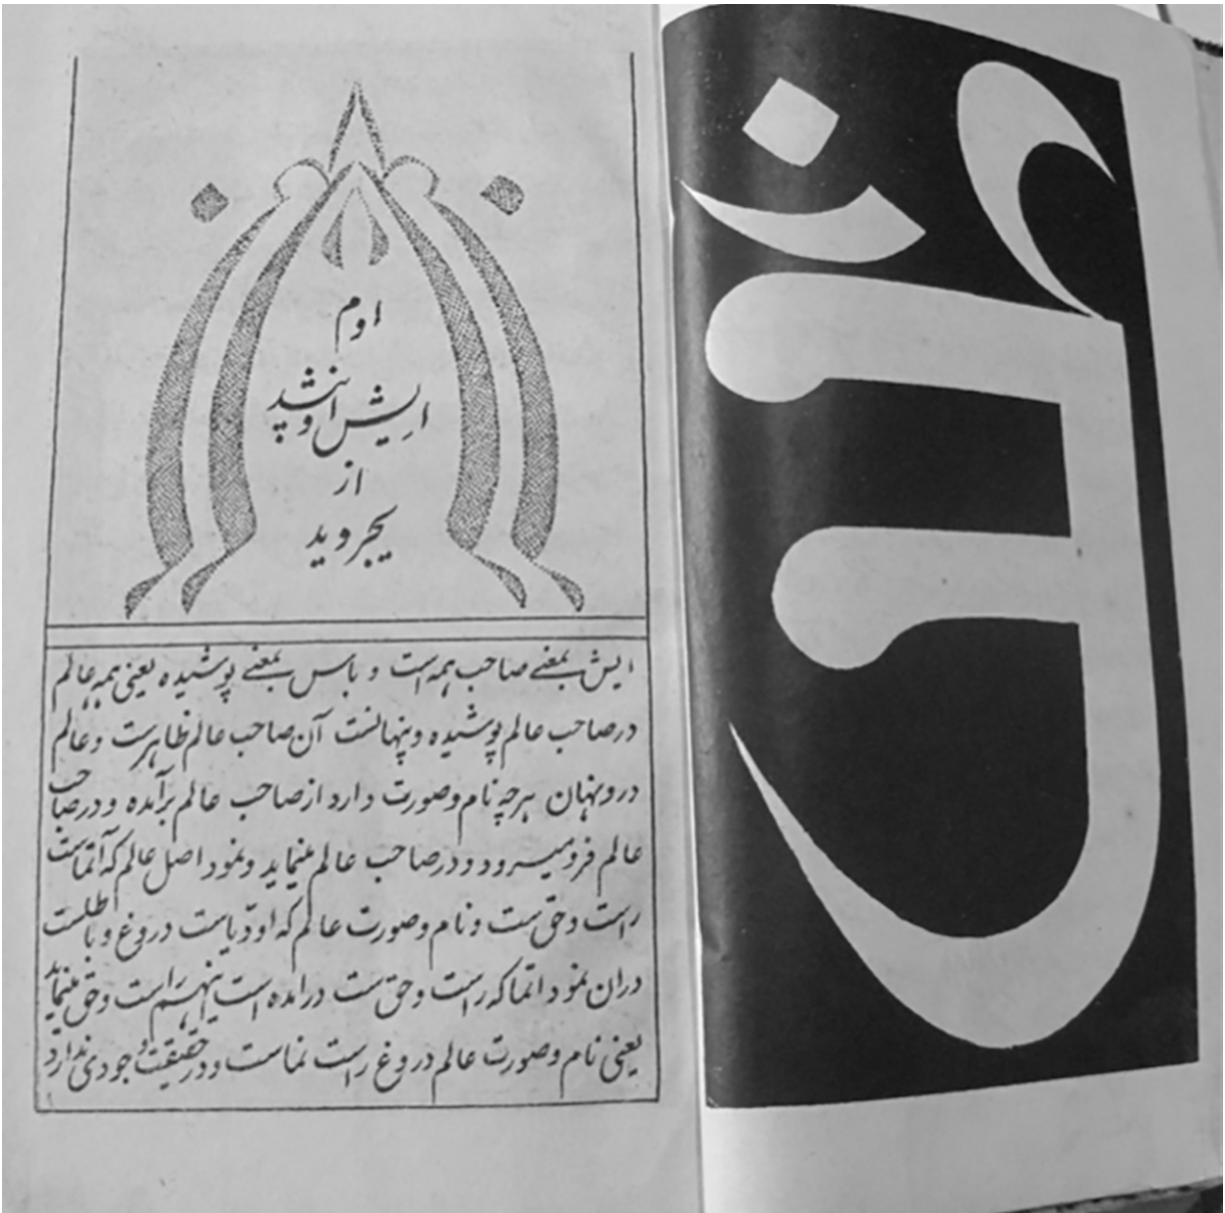 اوم
ایش اوپنشد
از
یجروید
ایش بمعنے صاحب همه است و باس بمعنے پوشیده یعنی همه عالم
در صاحب عالم پوشیده و پنهانست آن صاحب عالم ظاهرست و عالم
درو پنهان هر چه نام و صورت دارد از صاحب عالم برآمده و در صاحب
عالم فرو میرود و در صاحب عالم مینماید و نمود اصل عالم که آتماست
راست و حق ست و نام و صورت عالم که اودیاست دروغ و باطلست
دران نمود اتما که راست و حق ست درامده است اینهم راست و حق مینماید
یعنی نام و صورت عالم دروغ راست نماست و در حقیقت وجودی ندارد